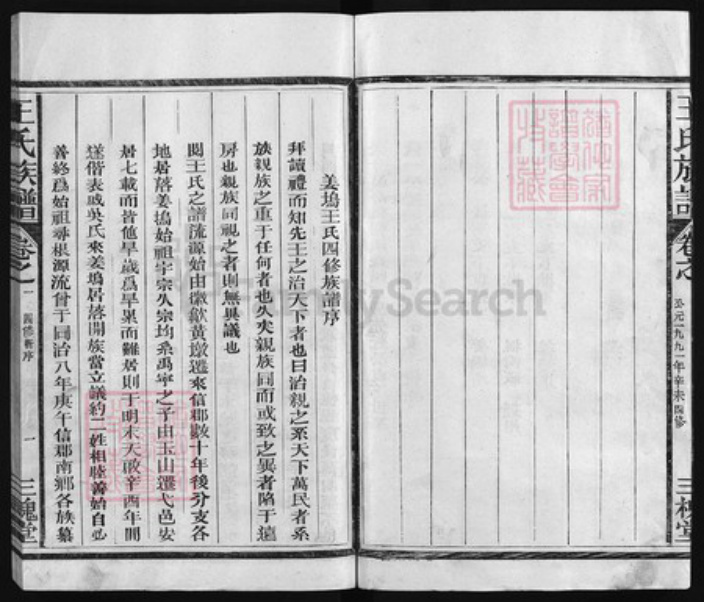 王氏族譜
卷之
公元一九九一年辛未四修
三槐堂
姜塢王氏四修族譜序
拜讀禮而知先王之治天下者也曰治親之系天下萬民者系
族親族之重于任何者也久夫親族同而或致之異者陷于遠
房也親族同視之者則無異議也
閱王氏之譜流源始由徽歙黃墩遷來信郡數十年後分支各
地居落姜塢始祖宇宗久宗均系禹寧之子由玉山遷弋邑安
居七載而皆他旱歲爲旱累而難居則于明末天啟辛酉年間
遂偕表戚吳氏來姜塢居落開族當立議約二姓相睦善始自必
善終爲始祖尋根源流曾于同治八年庚午信郡南鄉各族纂
王氏族譜
卷之一
四修新序
一
三槐堂
FamilySearch